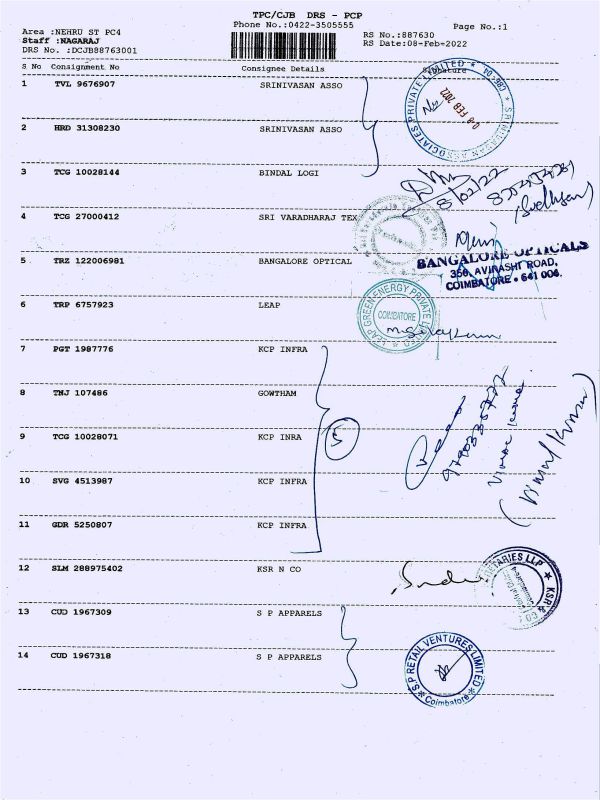 TPC/CJB DRS - PCP
Phone No.:0422-3505555
Page No.:1
Area :NEHRU ST PC4
Staff :NAGARAJ
DRS No. :DCJB88763001
RS No.:887630
RS Date:08-Feb-2022
S No Consignment No Consignee Details Signature
1 TVL 9676907 SRINIVASAN ASSO
2 HRD 31308230 SRINIVASAN ASSO
08 FEB 2022
3 TCG 10028144 BINDAL LOGI
8/02/22
4 TCG 27000412 SRI VARADHARAJ TEX
5 TRZ 122006981 BANGALORE OPTICAL
BANGALORE OPTICALS
358, AVINASHI ROAD,
COIMBATORE - 641 006.
6 TRP 6757923 LEAP
LEAP GREEN ENERGY PRIVATE LIMITED
COIMBATORE
7 PGT 1987776 KCP INFRA
8 TNJ 107486 GOWTHAM
9 TCG 10028071 KCP INRA
5
10 SVG 4513987 KCP INFRA
11 GDR 5250807 KCP INFRA
(Vimal Kumar)
12 SLM 288975402 KSR N CO
13 CUD 1967309 S P APPARELS
14 CUD 1967318 S P APPARELS
S.P RETAIL VENTURES LIMITED
Coimbatore